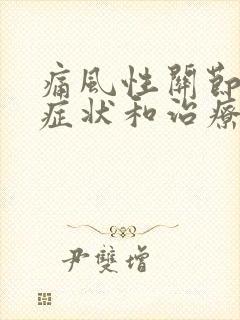 痛風性關節
症狀和治療
尹雙增